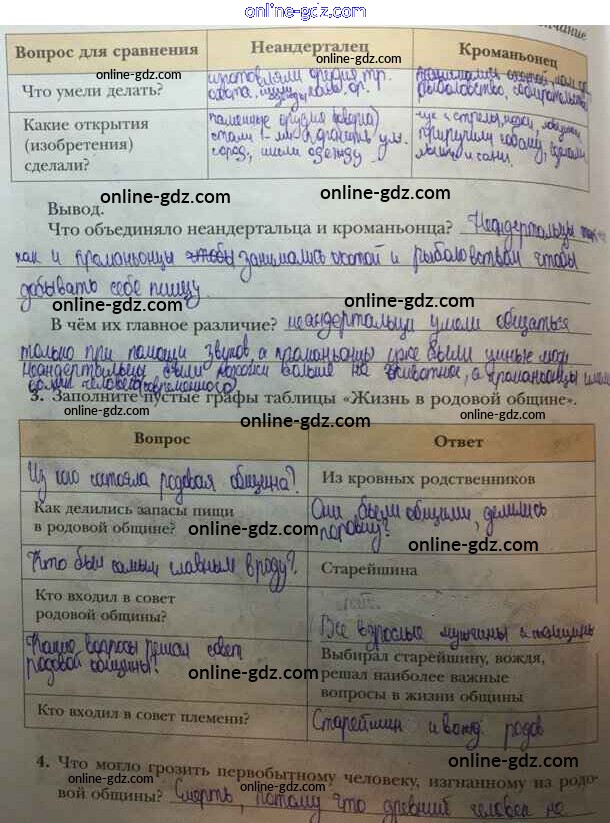 online-gdz.com
Вопрос для сравнения Неандерталец Кроманьонец
online-gdz.com
online-gdz.com
Что умели делать? изготовляли орудия тр.
охота,
рыболовство, собирательство
Какие открытия
(изобретения)
сделали?
каменные орудия
одежду
приручили собаку, сделали
online-gdz.com
online-gdz.com
Вывод.
Что объединяло неандертальца и кроманьонца? Неандертальцы так
как и кроманьонцы чтобы занимались охотой и рыболовством чтобы
добывать себе пищу.
online-gdz.com
online-gdz.com
В чём их главное различие? неандертальцы умели общаться
только при помощи звуков, а кроманьонцы уже были умные люди
Неандертальцы были похожи больше на животное, а кроманьонцы
online-gdz.com
online-gdz.com
3. Заполните пустые графы таблицы «Жизнь в родовой общине».
Вопрос Ответ
Из кого состояла родовая община? Из кровных родственников
Как делились запасы пищи
в родовой общине?
Они были общими, делились
поровну?
online-gdz.com
online-gdz.com
Кто был самым главным в роду? Старейшина
Кто входил в совет
родовой общины?
Все взрослые мужчины и женщины
Какие вопросы решал совет
родовой общины?
Выбирал старейшину, вождя,
решал наиболее важные
вопросы в жизни общины
online-gdz.com
online-gdz.com
Кто входил в совет племени? Старейшин и вожд. родов
4. Что могло грозить первобытному человеку, изгнанному из родо-
вой общины? Смерть, потому что древний человек не
online-gdz.com
online-gdz.com